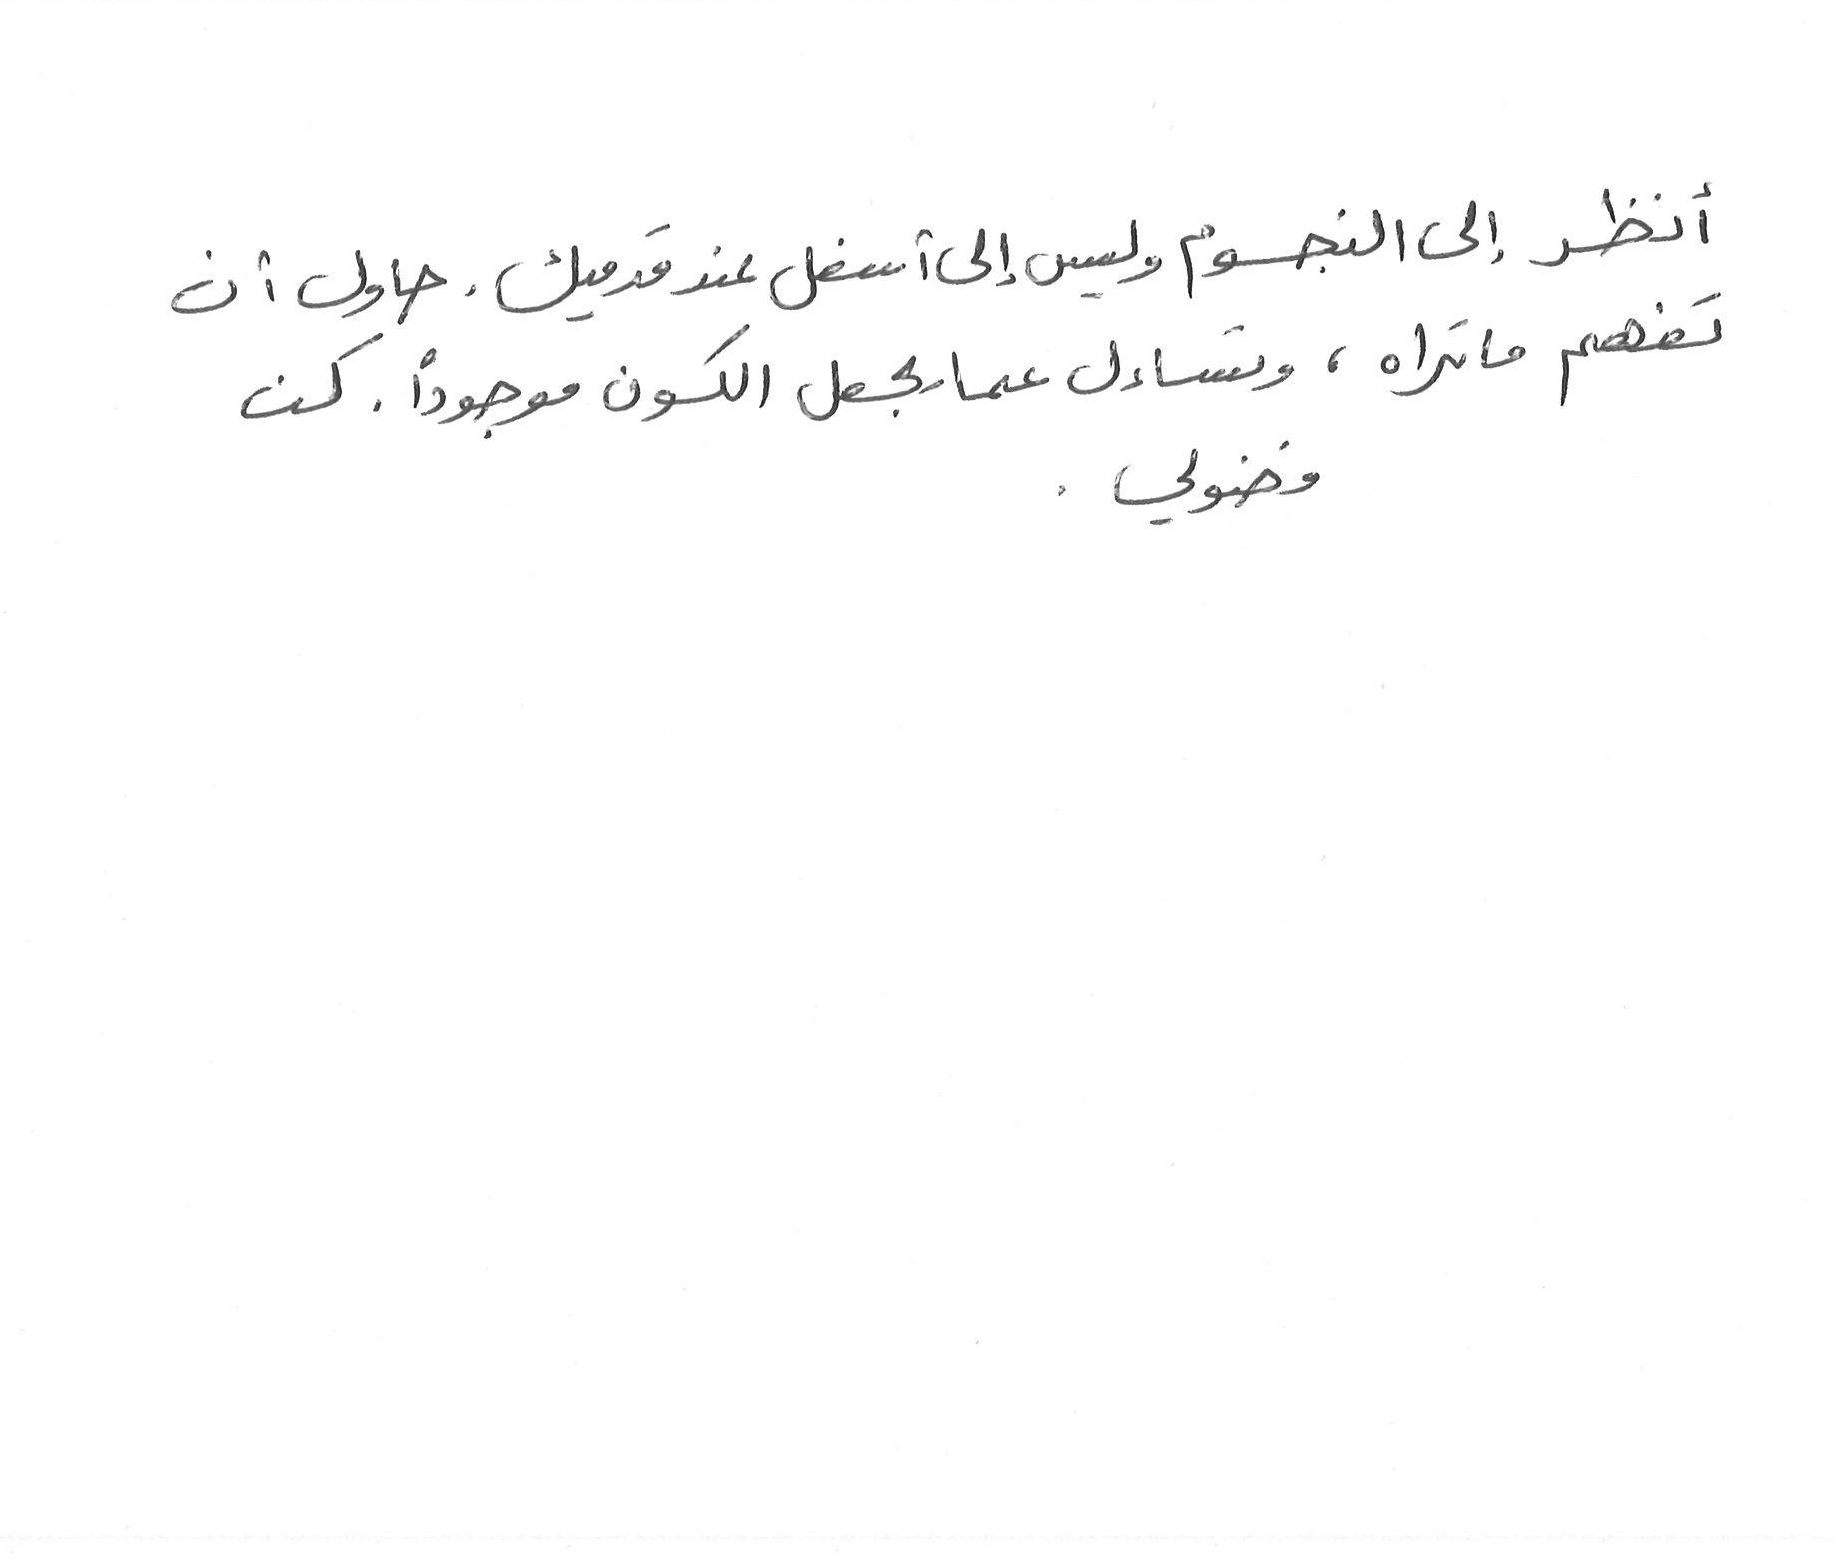 أنظر إلى النجوم وليس إلى أسفل عند قدميك. حاول أن
تفهم ما تراه ، وتساءل عما يجعل الكون موجوداً. كن
فضولي .